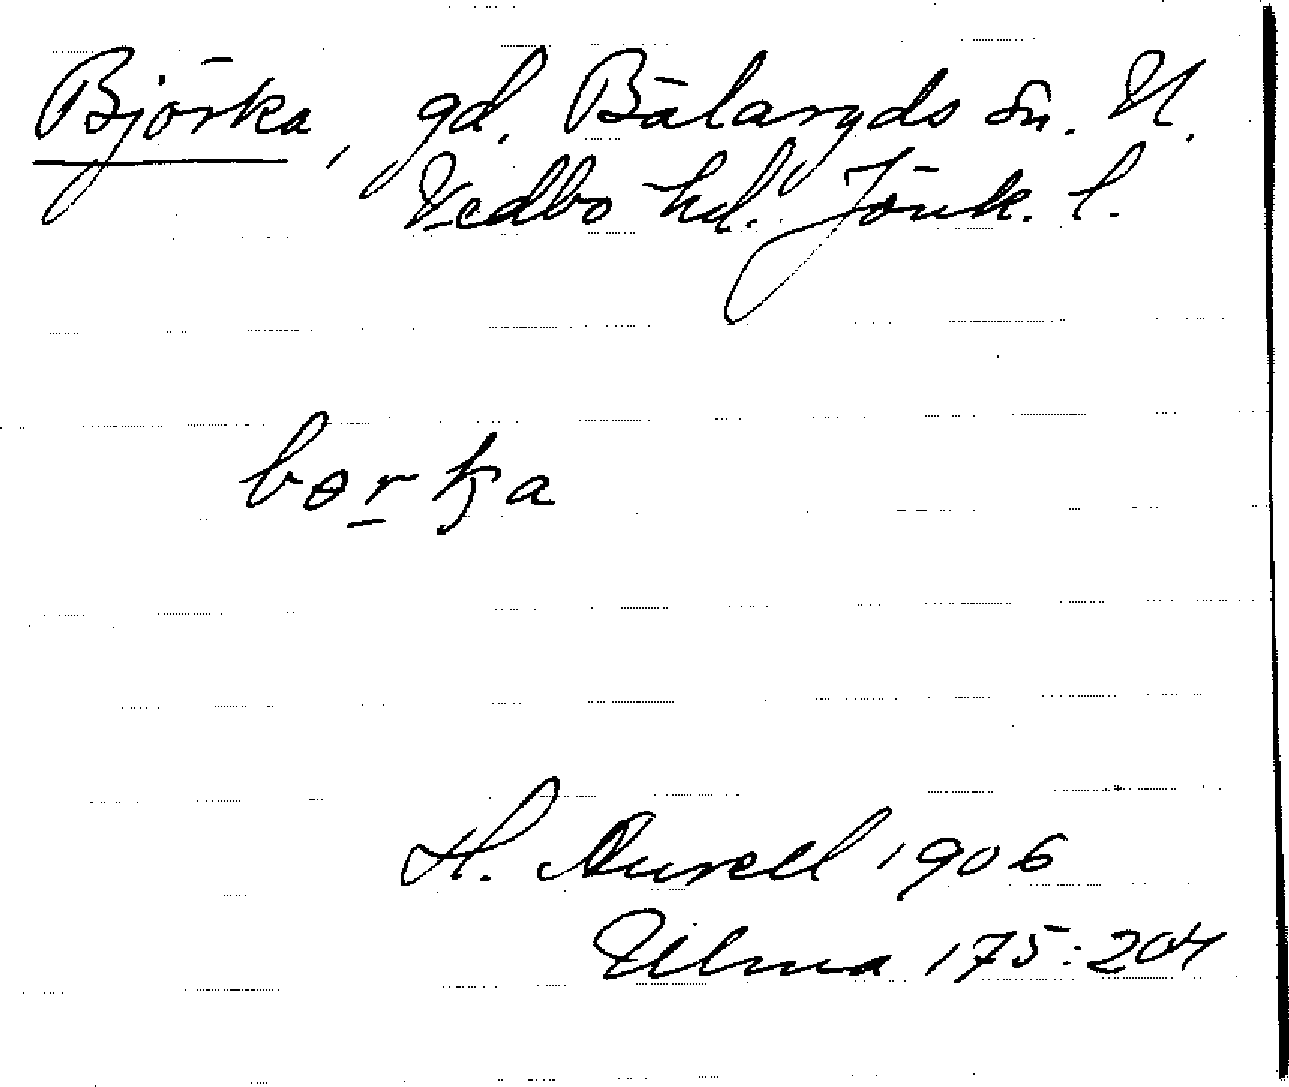 Björka, gd. Bälaryds sn. N.
Vedbo hd. Jönk. l.
bɵrka
H. Aurell 1906
Ulma 175:204